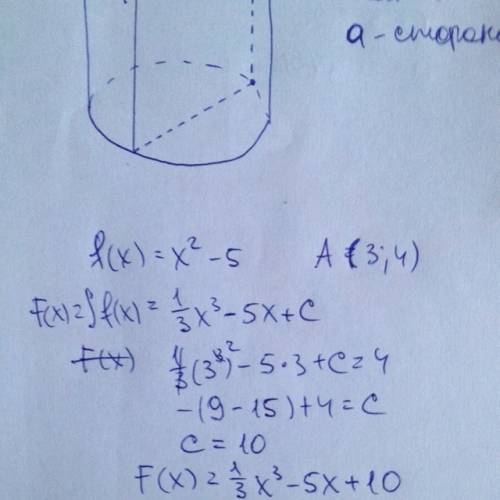 a - сторона
f(x) = x² - 5    A (3; 4)
F(x) = ∫f(x) = 1/3 x³ - 5x + C
F(x) 1/3 (3³)² - 5·3 + C = 4
-(9 - 15) + 4 = C
C = 10
F(x) = 1/3 x³ - 5x + 10